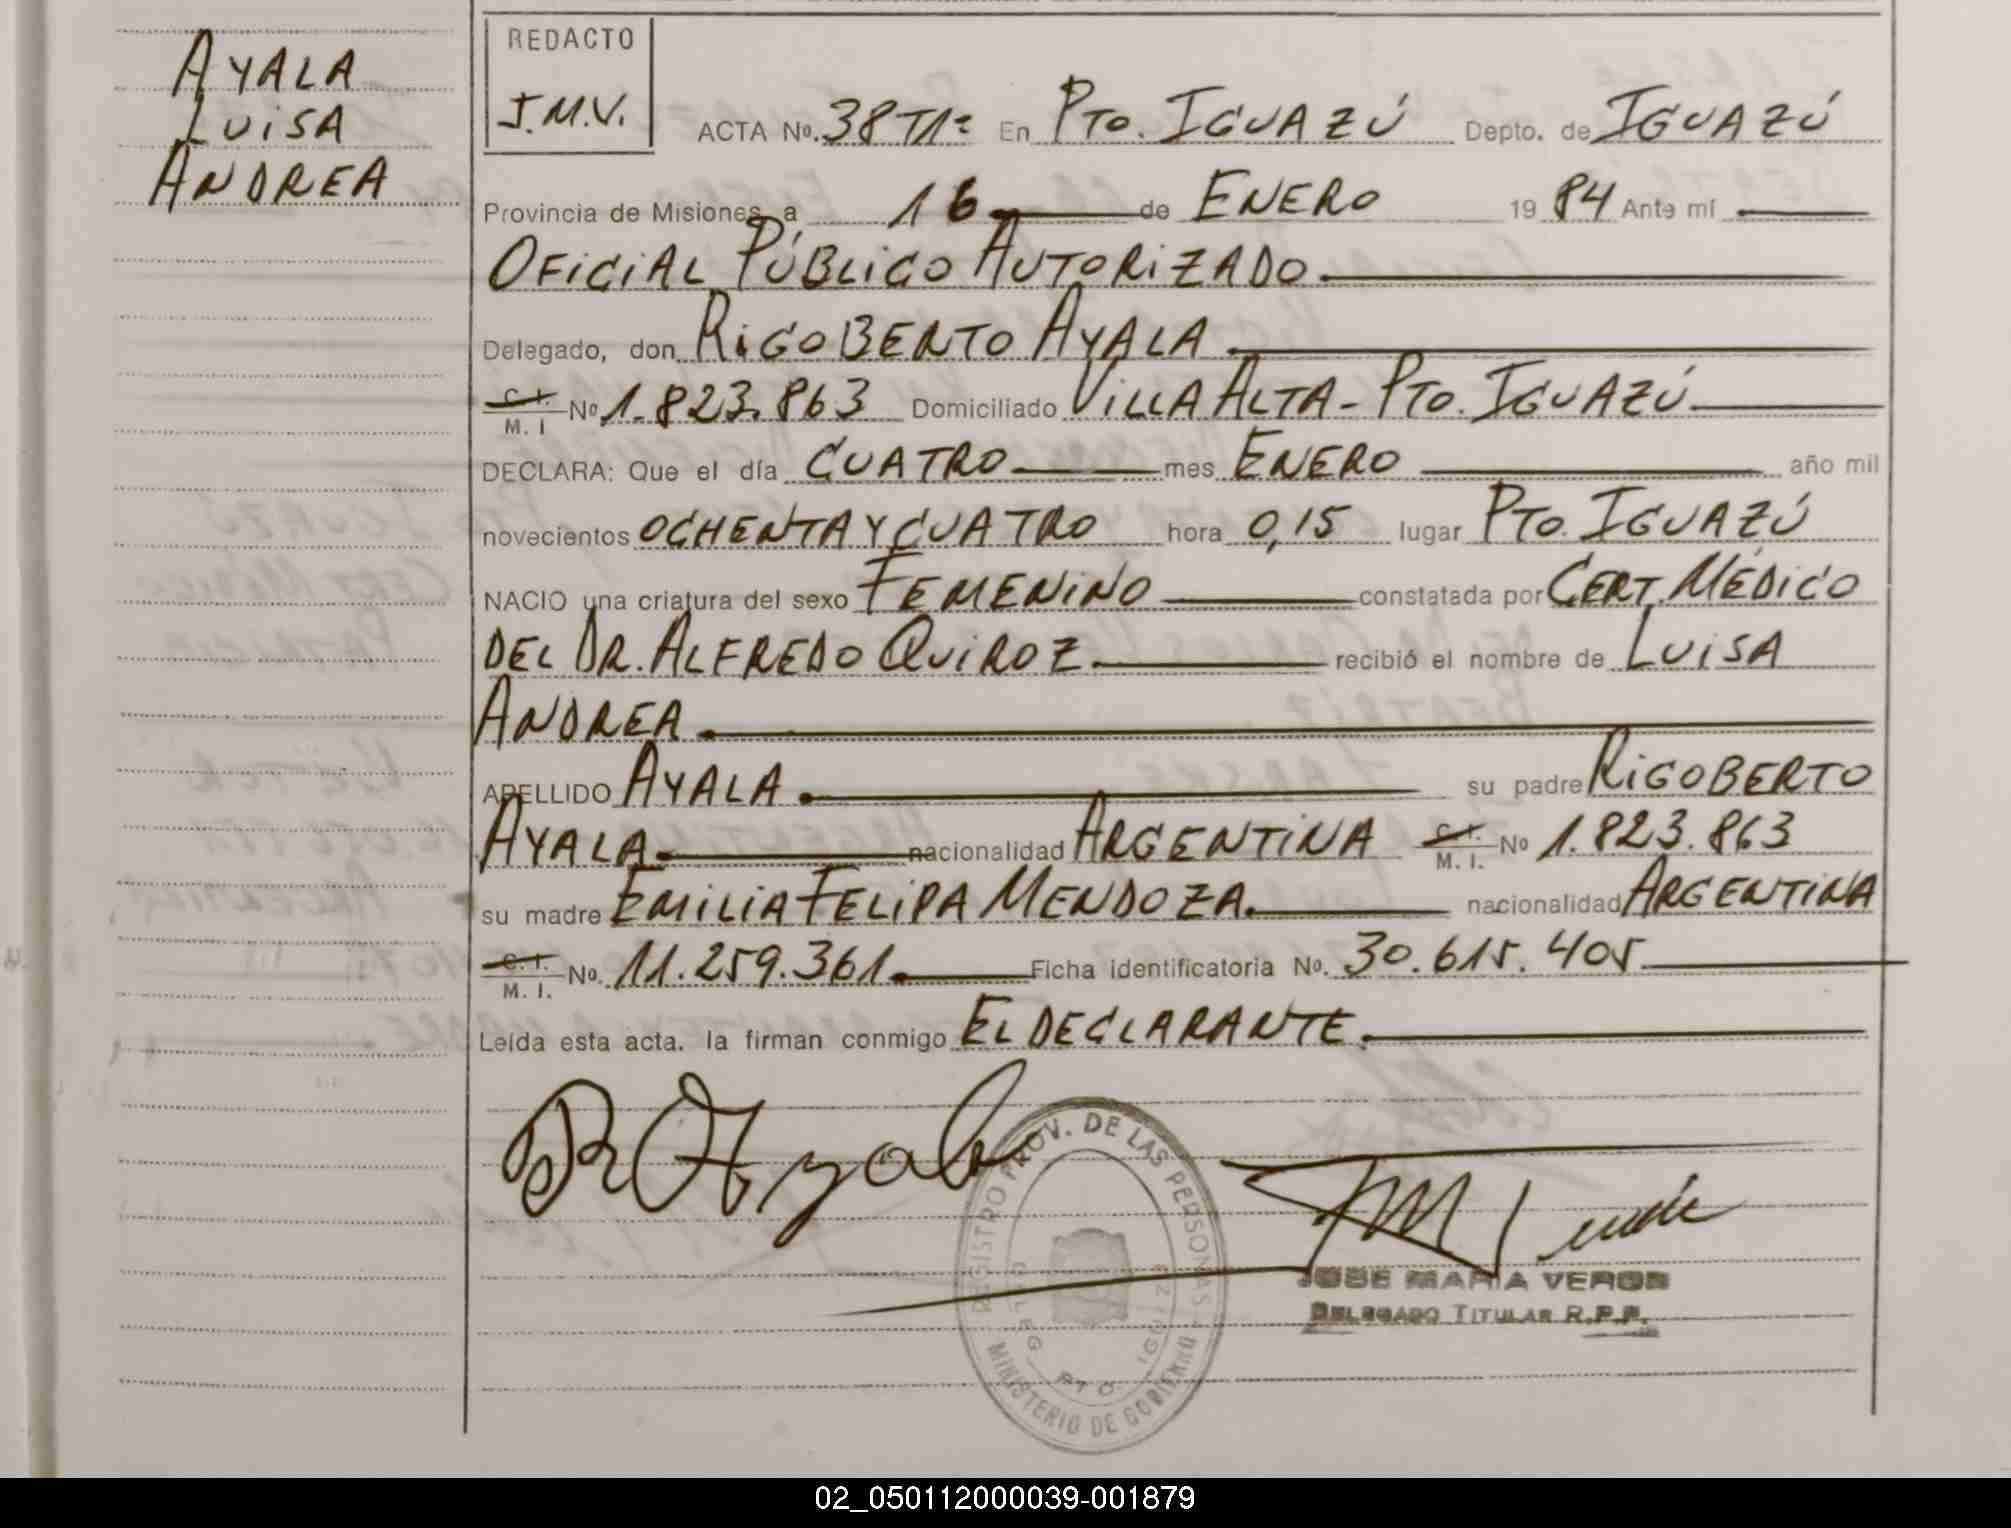 AYALA
LUISA
ANDREA
REDACTO
J.M.V.
ACTA No. 38 T1º En PTO. IGUAZÚ Depto. de IGUAZÚ
Provincia de Misiones, a 16 de ENERO 19 84 Ante mí
OFICIAL PÚBLICO AUTORIZADO
Delegado, don RIGOBERTO AYALA
C.I. M. I No 1.823.863 Domiciliado VILLA ALTA - PTO. IGUAZÚ
DECLARA: Que el día CUATRO mes ENERO año mil
novecientos OCHENTA Y CUATRO hora 0,15 lugar PTO. IGUAZÚ
NACIO una criatura del sexo FEMENINO constatada por CERT. MÉDICO
DEL DR. ALFREDO QUIROZ recibió el nombre de LUISA
ANDREA
APELLIDO AYALA su padre RIGOBERTO
AYALA nacionalidad ARGENTINA C.I. M. I. No 1.823.863
su madre EMILIA FELIPA MENDOZA nacionalidad ARGENTINA
C.I. M. I. No. 11.259.361 Ficha identificatoria No. 30.615.405
Leída esta acta. la firman conmigo EL DECLARANTE
R Ayala
REGISTRO PROV. DE LAS PERSONAS
DELEG. PTO. IGUAZU
MINISTERIO DE GOBIERNO
JOSE MARIA VERON
DELEGADO TITULAR R.P.P.
02_050112000039-001879